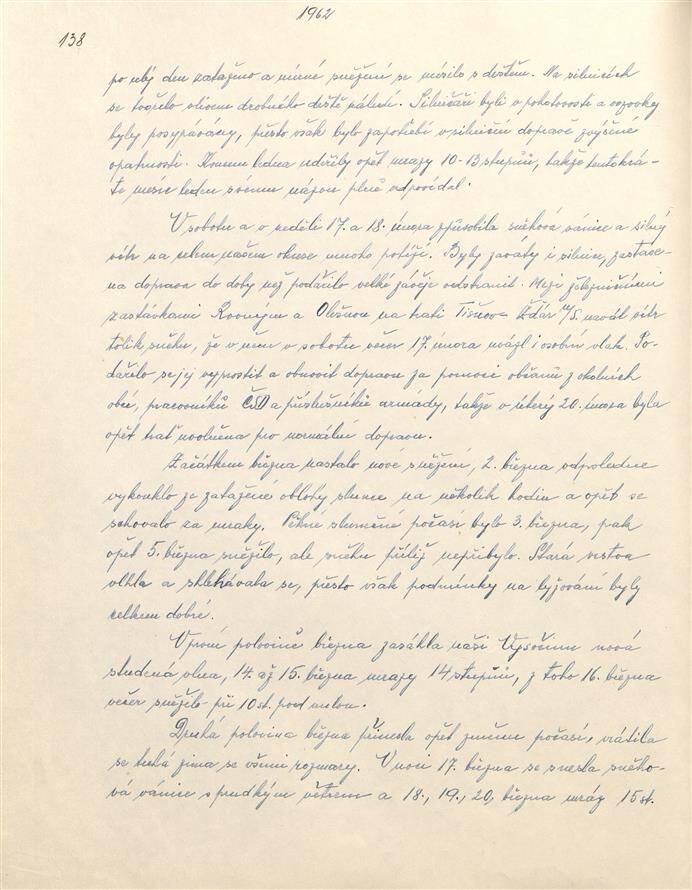 1962
138
po celý den zataženo a mírné sněžení se mísilo s deštěm. Na silnicích
se tvořilo vlivem drobného deště náledí. Silničáři byli v pohotovosti a vozovky
byly posypávány, přesto však bylo zapotřebí v silniční dopravě zvýšené
opatrnosti. Koncem ledna udeřily opět mrazy 10-13 stupňů, takže tentokrá-
te měsíc leden svému názvu plně odpovídal.
V sobotu a v neděli 17. a 18. února způsobila sněhová vánice a silný
vítr na celém našem okrese mnoho potíží. Byly zaváty i silnice, zastave-
na doprava do doby než podařilo velké závěje odstranit. Mezi železničními
zastávkami Rovným a Olešnou na trati Tišnov - Žďár n/S. navál vítr
tolik sněhu, že v něm v sobotu večer 17. února uvázl i osobní vlak. Po-
dařilo se jej vyprostit a obnovit dopravu za pomoci občanů z okolních
obcí, pracovníků ČSD a příslušníků armády, takže v úterý 20. února byla
opět trať uvolněna pro normální dopravu.
Začátkem března nastalo nové sněžení, 2. března odpoledne
vykouklo ze zatažené oblohy slunce na několik hodin a opět se
schovalo za mraky. Pěkné slunečné počasí bylo 3. března, pak
opět 5. března sněžilo, ale sněhu příliž nepřibylo. Stará vrstva
vlhla a slehávala se, přesto však podmínky na lyžování byly
celkem dobré.
V první polovině března zasáhla naši Vysočinu nová
studená vlna, 14. až 15. března mrazy 14 stupňů, z toho 16. března
večer sněžilo při 10 st. pod nulou.
Druhá polovina března přinesla opět změnu počasí, vrátila
se tuhá zima se všemi rozmary. V noci 17. března se snesla sněho-
vá vánice s prudkým větrem a 18., 19., 20. března mráz 15 st.